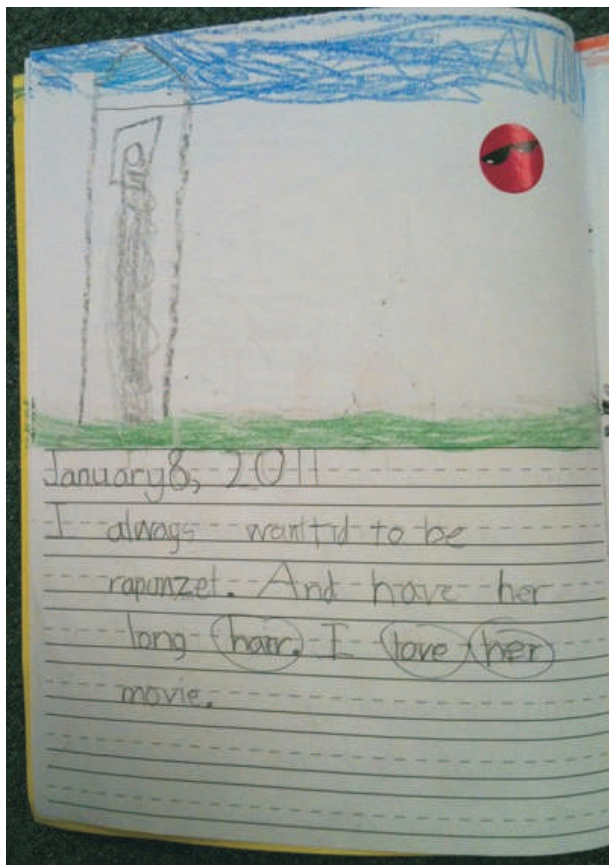 January 8, 2011
I always wantid to be
rapunzel. And have her
long hair. I love her
movie.